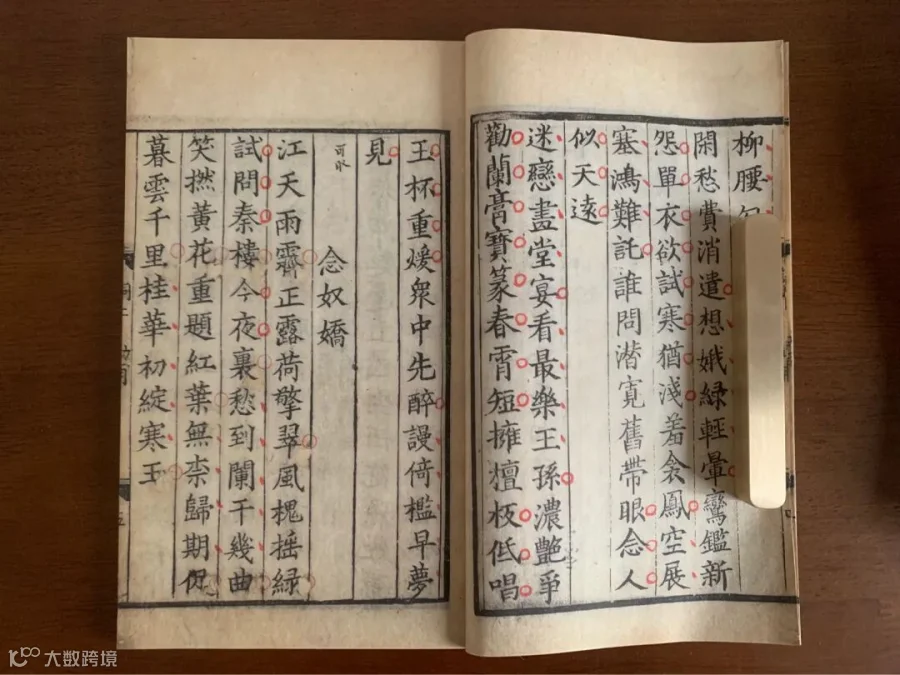 柳腰勻
閑愁費消遣想娥緑輕暈鸞鑑新
怨單衣欲試寒猶淺羞衾鳳空展
塞鴻難託誰問潛寬舊帶眼念人
似天遠
迷戀畫堂宴看最樂王孫濃艷爭
勸蘭膏寶篆春宵短擁檀板低唱
玉杯重煖衆中先醉謾倚檻早夢
見
可取
念奴嬌
江天雨霽正露荷擎翠風槐揺緑
試問秦樓今夜裏愁到闌干幾曲
笑撚黃花重題紅葉無柰歸期促
暮雲千里桂華初綻寒玉
大数跨境